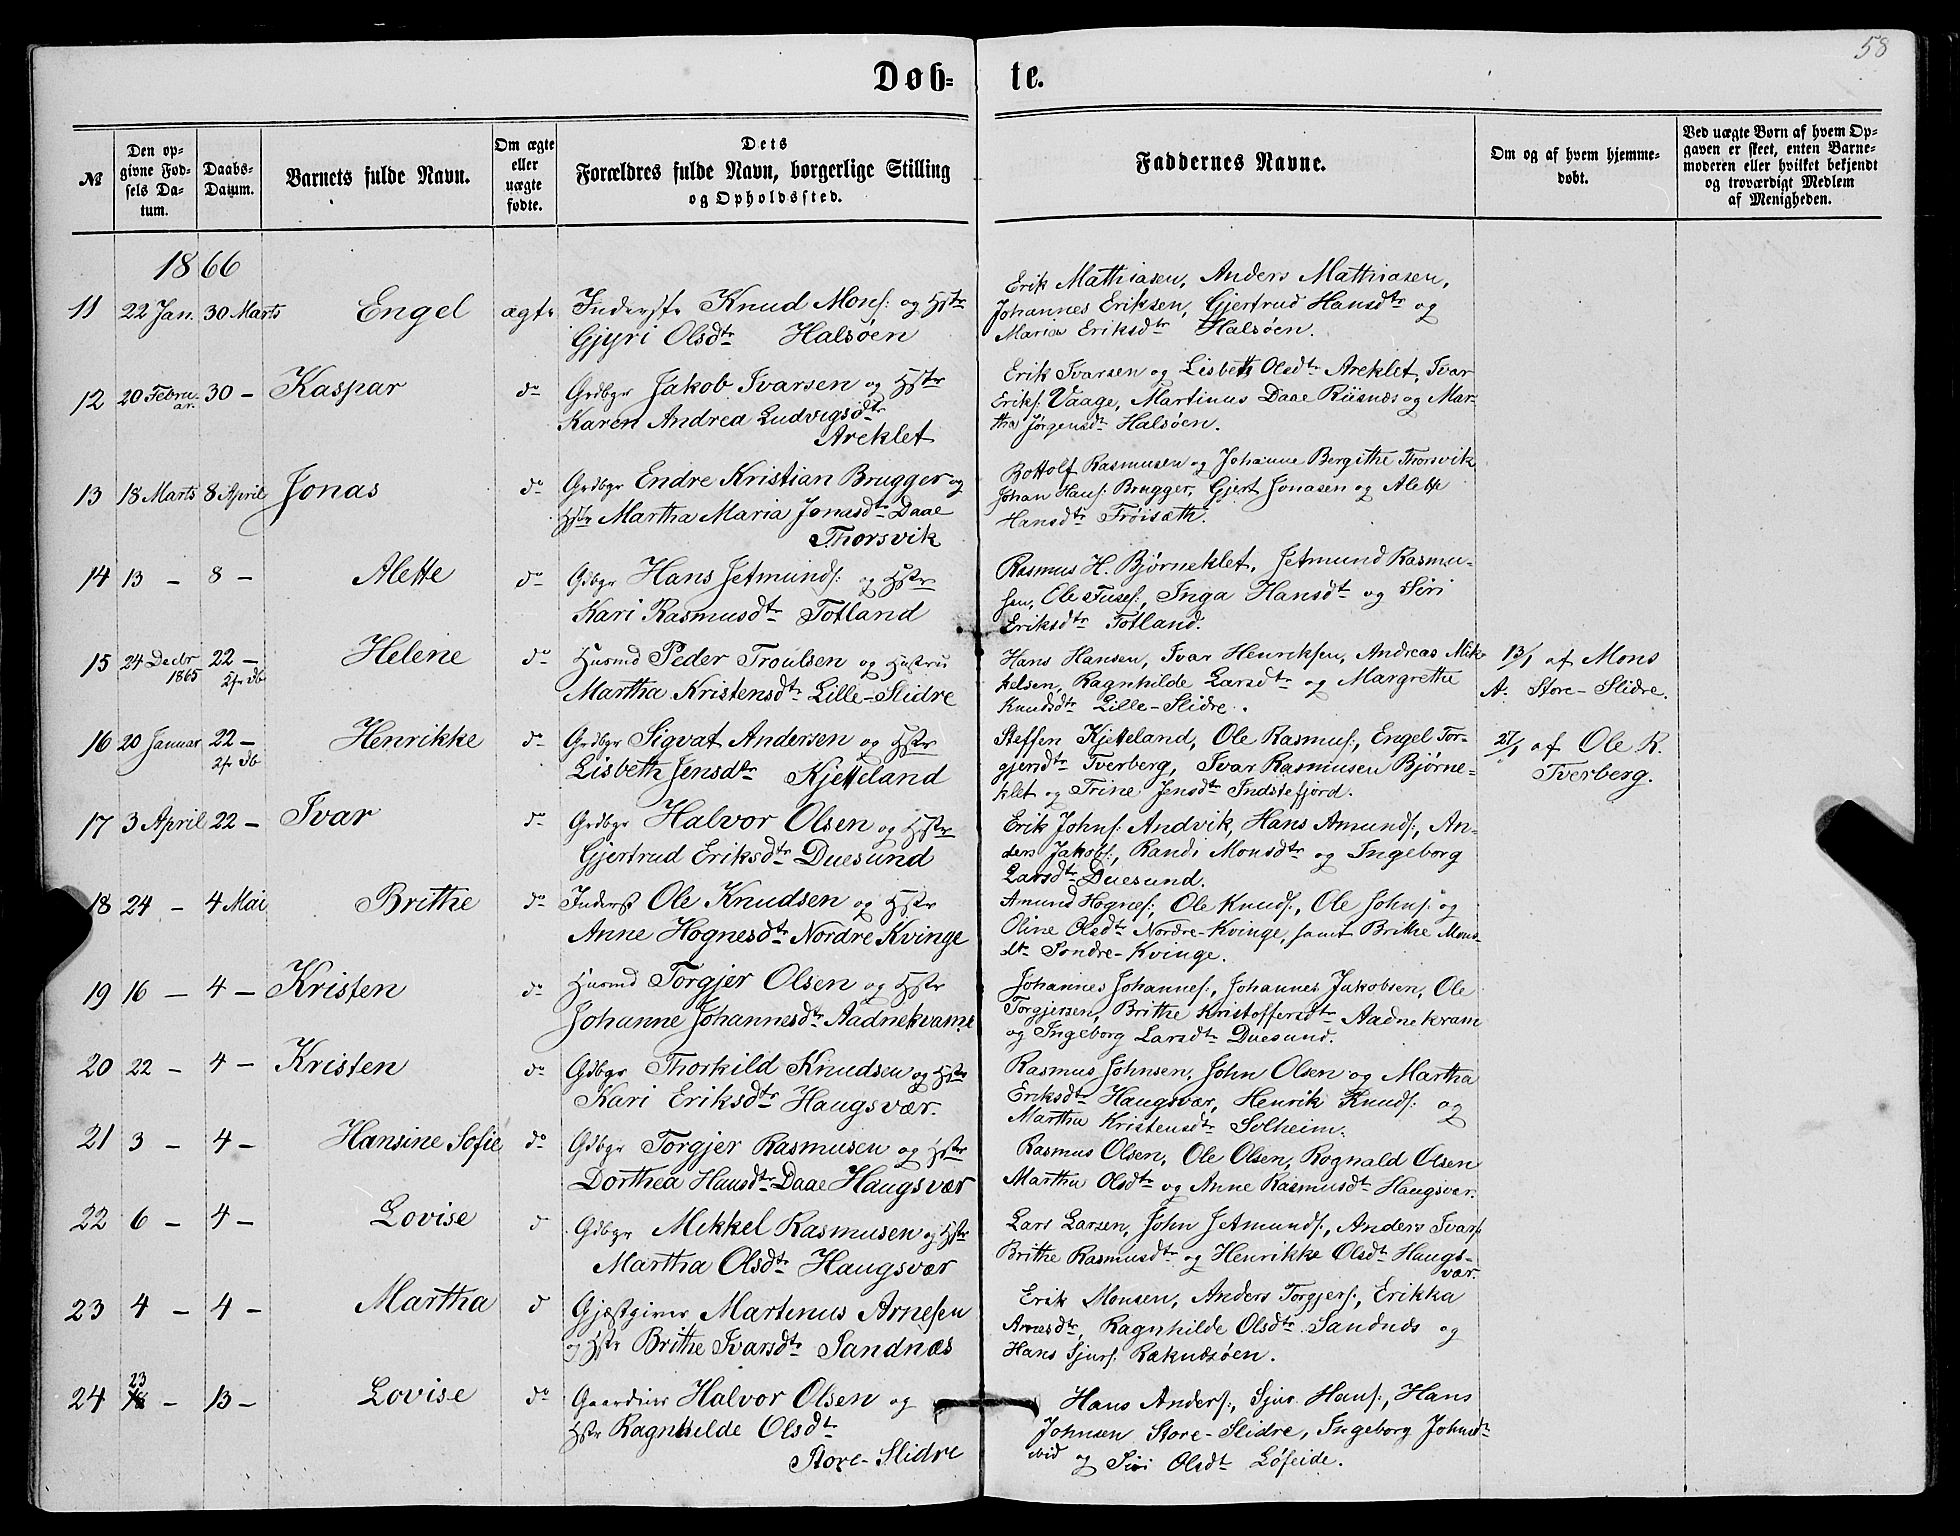 58
Døb- te.
№
Den opgivne Fødsels Datum.
Daabs-Datum.
Barnets fulde Navn.
Om ægte eller uægte fødte.
Dets Forældres fulde Navn, borgerlige Stilling og Opholdssted.
Faddernes Navne.
Om og af hvem hjemmedøbt.
Ved uægte Børn af hvem Opgaven er skeet, enten Barnemoderen eller hvilket bekjendt og troværdigt Medlem af Menigheden.
1866
11 22 Jan. 30 Marts Engel ægte Inderste Knud Mons: og Hstr
Gjyri Olsdtr Halsøen
Erik Mathiasen, Anders Mathiasen,
Johannes Eriksen, Gjertrud Hansdtr og
Maria Eriksdtr Halsøen.
12 20 Febru-ar. 30 - Kaspar do Grdbgr Jakob Ivarsen og Hstr
Karen Andrea Ludvigsdtr
Areklet
Erik Ivarsen og Lisbeth Olsdtr Areklet, Ivar
Eriks: Vaage, Martinus Daae Riisnæs og Mar-
tha Jørgensdtr Halsøen.
13 18 Marts 8 April Jonas do Grdbgr Endre Kristian Brugger og
Hstr Martha Maria Jonasdtr Daae
Thorsvik
Bottolf Rasmusen og Johanne Bergithe Thorsvik,
Johan Hans: Brugger, Gjert Jonasen og Alette
Hansdtr Frøisæth.
14 13 - 8 - Alette do Gdbgr Hans Jetmunds: og Hstr
Kari Rasmusdtr Totland
Rasmus H. Bjørneklet, Jetmund Rasmu-
sen, Ole Fuses:, Inga Hansdtr og Siri
Eriksdtr Totland.
15 24 Decbr 1865 22 - Helene do Husmd Peder Troulsen og Hustru
Martha Kristensdtr Lille-Slidre
Hans Hansen, Ivar Henriksen, Andreas Mik-
kelsen, Ragnhilde Larsdtr og Margrethe
Knudsdtr Lille-Slidre.
13/1 af Mons
A. Store-Slidre.
16 20 Januar 22 - Henrikke do Grdbgr Sigvat Andersen og Hstr
Lisbeth Jensdtr Kjetteland
Steffen Kjetteland, Ole Rasmus:, Engel Tor-
gjersdtr Tverberg, Ivar Rasmusen Bjørne-
klet og Trine Jensdtr Indstefjord.
27/1 af Ole R.
Tverberg.
17 3 April 22 - Ivar do Grdbgr Halvor Olsen og Hstr
Gjertrud Eriksdtr Duesund
Erik Johns: Andvik, Hans Amunds:, An-
ders Jakobs:, Randi Monsdtr og Ingeborg
Larsdtr Duesund.
18 24 - 4 Mai Brithe do Inderst Ole Knudsen og Hstr
Anne Hognesdtr Nordre Kvinge
Amund Hognes:, Ole Knuds:, Ole Johns: og
Oline Olsdtr Nordre-Kvinge, samt Brithe Mons-
dtr Søndre-Kvinge.
19 16 - 4 - Kristen do Husmd Torgjer Olsen og Hstr
Johanne Johannesdtr Aadnekvame
Johannes Johannes:, Johannes Jakobsen, Ole
Torgjersen, Brithe Kristoffersdtr Aadnekvam
og Ingeborg Larsdtr Duesund.
20 22 - 4 - Kristen do Gdbgr Thorkild Knudsen og Hstr
Kari Eriksdtr Haugsvær.
Rasmus Johnsen, John Olsen og Martha
Eriksdtr Haugsvær, Henrik Knuds: og
Martha Kristensdtr Solheim.
21 3 - 4 - Hansine Sofie do Gdbgr Torgjer Rasmusen og Hstr
Dorthea Hansdtr Daae Haugsvær
Rasmus Olsen, Ole Olsen, Rognald Olsen
Martha Olsdtr og Anne Rasmusdtr Haugsvær.
22 6 - 4 - Lovise d Gdbgr Mikkel Rasmusen og Hstr
Martha Olsdtr Haugsvær
Lars Larsen, John Jetmunds:, Anders Ivars:
Brithe Rasmusdtr og Henrikke Olsdtr Haugs-
vær.
23 4 - 4 - Martha d Gjæstgiver Martinus Arnesen
og Hstr Brithe Ivarsdtr Sandnæs
Erik Monsen, Anders Torgjers:, Erikka
Arnesdtr, Ragnhilde Olsdtr Sandnæs og
Hans Sjurs: Raknæsøen.
24 23 - 13 - Lovise do Gaardmr Halvor Olsen og
Hstr Ragnhilde Olsdtr
Store-Slidre
Hans Anders:, Sjur Hans:, Hans
Johnsen Store-Slidre, Ingeborg Johnsdtr
ibid og Siri Olsdtr Løfeide.